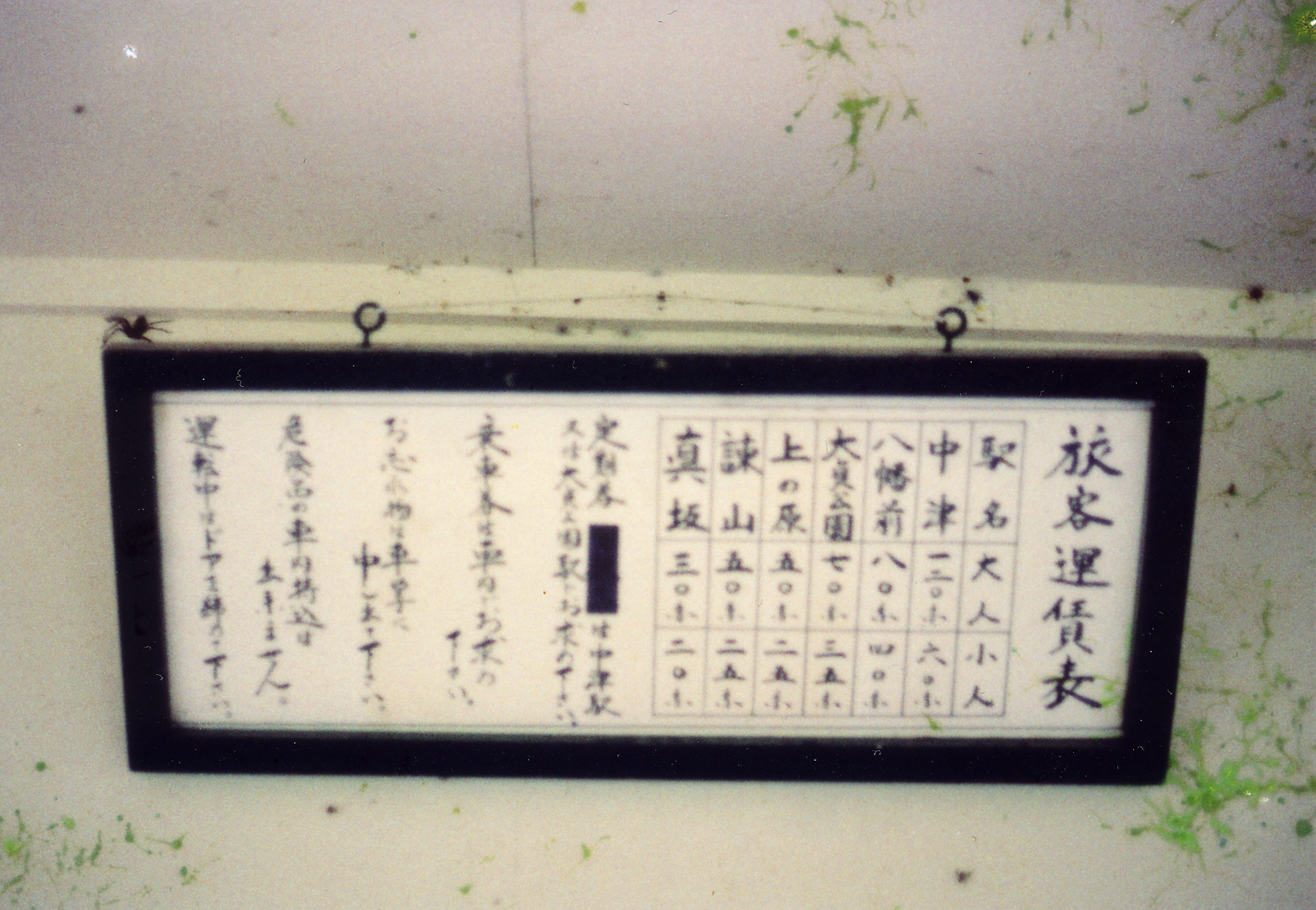 旅客運賃表
駅名 大人 小人
中津 一二〇円 六〇円
八幡前 八〇円 四〇円
大貞公園 七〇円 三五円
上の原 五〇円 二五円
諫山 五〇円 二五円
真坂 三〇円 二〇円
定期券 は中津駅
又は大貞公園駅でお求め下さい
乗車券は車内でお求め
下さい
お忘れ物は車掌に
申し出て下さい
危険品の車内持込は
出来ません。
運転中はドアを締めて下さい